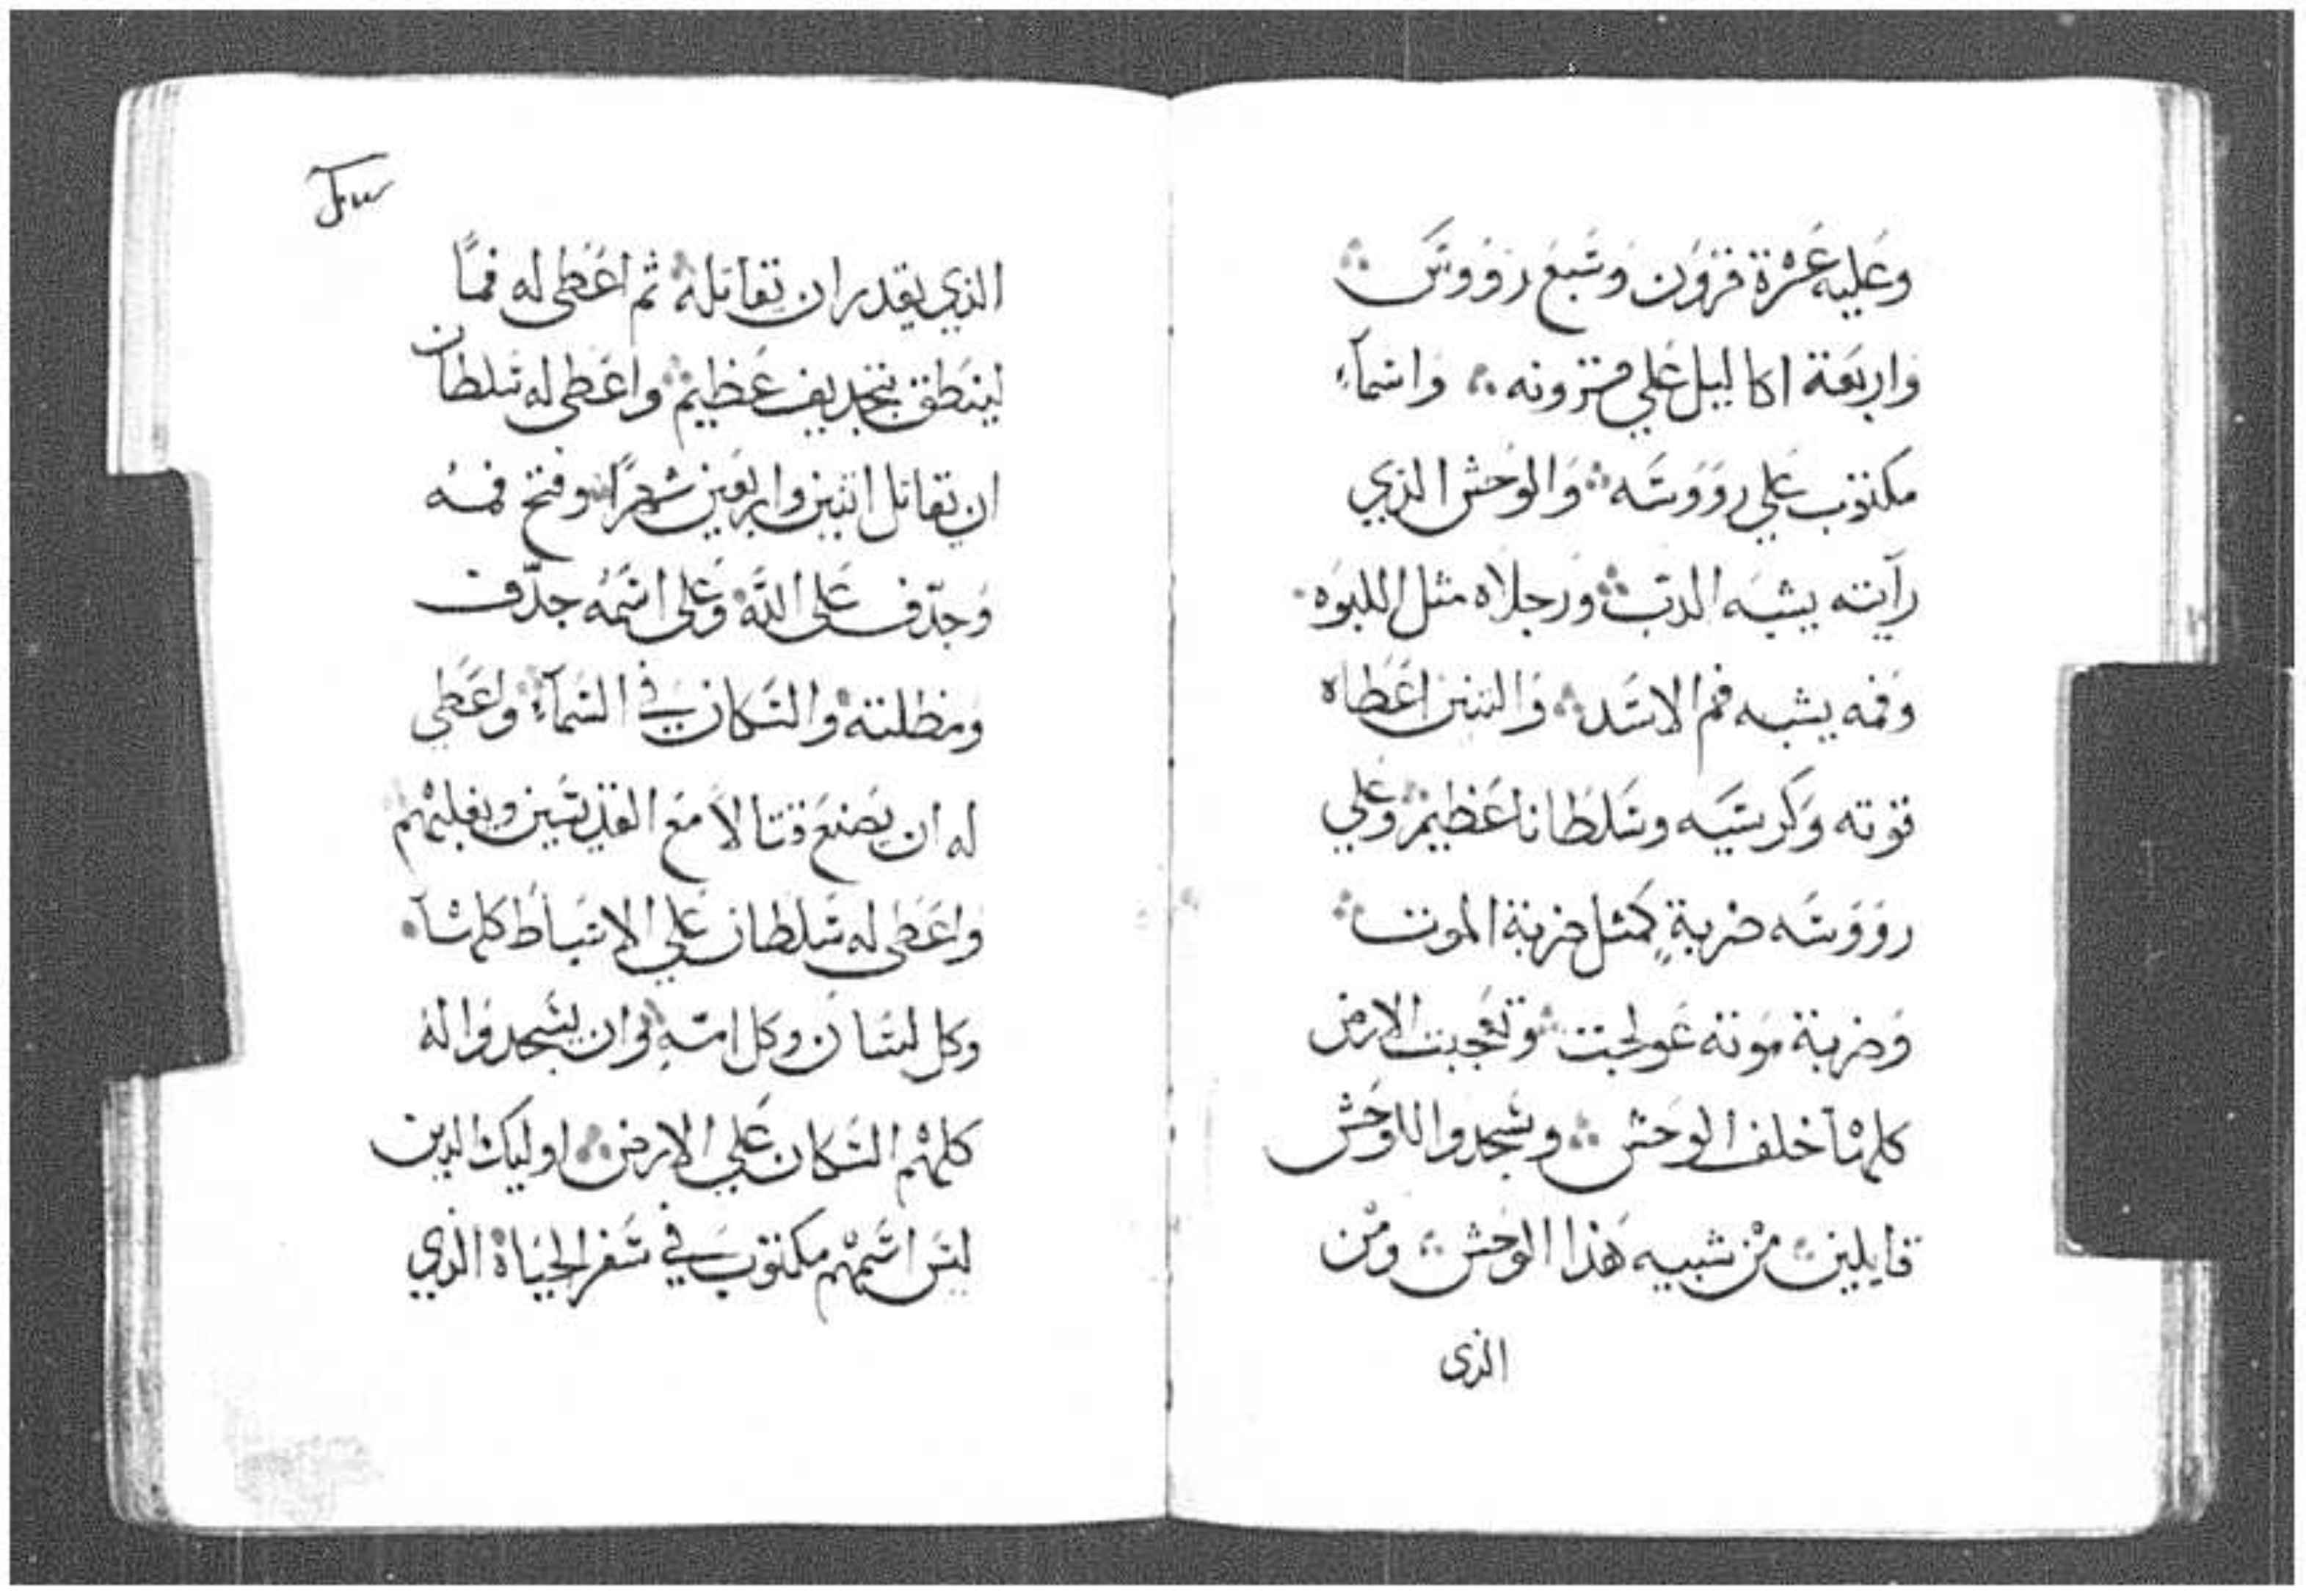 وعليه عشرة قرون وسبع رووس
واربعة اكاليل علي قرونه واسمآء
مكتوب علي رووسه والوحش الذي
رآيته يشبه الدب ورجلاه مثل اللبوه
وفمه يشبه فم الاسد والتنين اعطاه
قوته وكرسيه وسلطانا عظيم وعلي
رووسه ضربة كمثل ضربة الموت
وضربة موته عولجت وتعجبت الارض
كلها خلف الوحش وسجدوا للوحش
قايلين من شبيه هذا الوحش ومن
الذى
الذي يقدر ان يقاتله ثم اعطى له فمًا
لينطق بتجديف عظيم واعطى له سلطان
ان يقاتل اتنين واربعين شهرًا وفتح فمه
وجدّف على اللّه وعلى اسمه جدّف
ومظلته والسكان في السمآء واعطي
له ان يصنع قتالا مع القديسين ويغلبهم
واعطى له سلطان علي الاسباط كلها
وكل لسان وكل امة وان يسجدوا له
كلهم السكان علي الارض اوليك الدين
ليس اسمهم مكتوب في سفر الحياة الذي